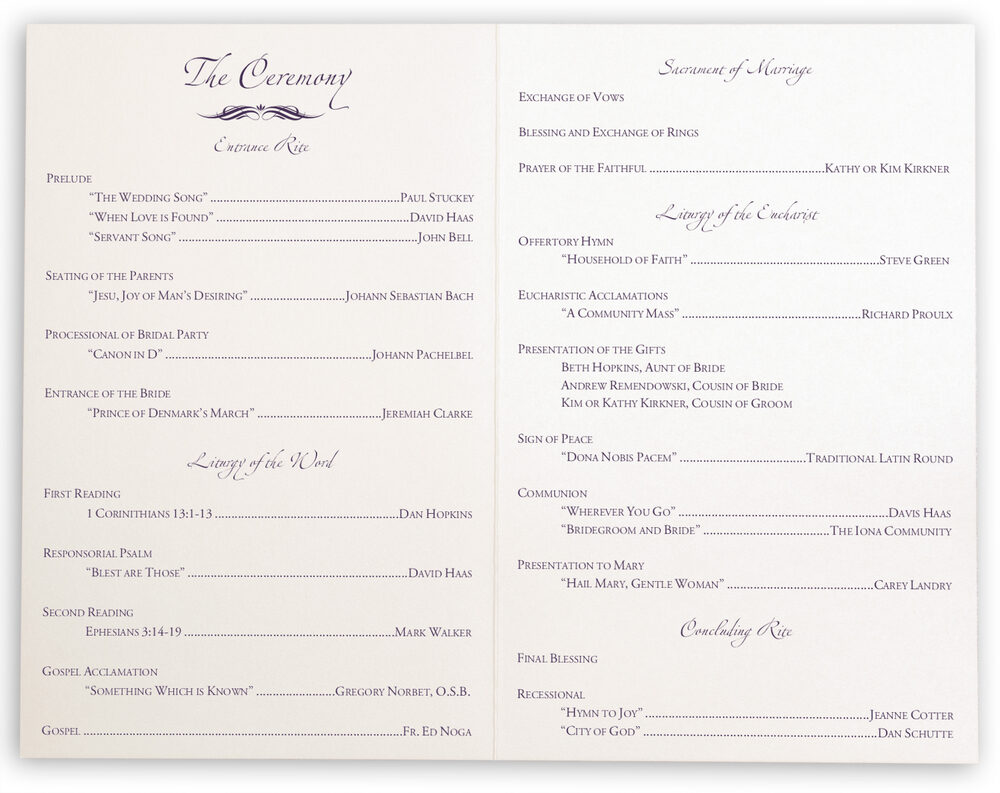 The Ceremony
Entrance Rite
Prelude
“The Wedding Song” ............ Paul Stuckey
“When Love is Found” ............ David Haas
“Servant Song” ............ John Bell
Seating of the Parents
“Jesu, Joy of Man’s Desiring” ............ Johann Sebastian Bach
Processional of Bridal Party
“Canon in D” ............ Johann Pachelbel
Entrance of the Bride
“Prince of Denmark’s March” ............ Jeremiah Clarke
Liturgy of the Word
First Reading
1 Corinthians 13:1-13 ............ Dan Hopkins
Responsorial Psalm
“Blest are Those” ............ David Haas
Second Reading
Ephesians 3:14-19 ............ Mark Walker
Gospel Acclamation
“Something Which is Known” ............ Gregory Norbet, O.S.B.
Gospel ............ Fr. Ed Noga
Sacrament of Marriage
Exchange of Vows
Blessing and Exchange of Rings
Prayer of the Faithful ............ Kathy or Kim Kirkner
Liturgy of the Eucharist
Offertory Hymn
“Household of Faith” ............ Steve Green
Eucharistic Acclamations
“A Community Mass” ............ Richard Proulx
Presentation of the Gifts
Beth Hopkins, Aunt of Bride
Andrew Remendowski, Cousin of Bride
Kim or Kathy Kirkner, Cousin of Groom
Sign of Peace
“Dona Nobis Pacem” ............ Traditional Latin Round
Communion
“Wherever You Go” ............ Davis Haas
“Bridegroom and Bride” ............ The Iona Community
Presentation to Mary
“Hail Mary, Gentle Woman” ............ Carey Landry
Concluding Rite
Final Blessing
Recessional
“Hymn to Joy” ............ Jeanne Cotter
“City of God” ............ Dan Schutte